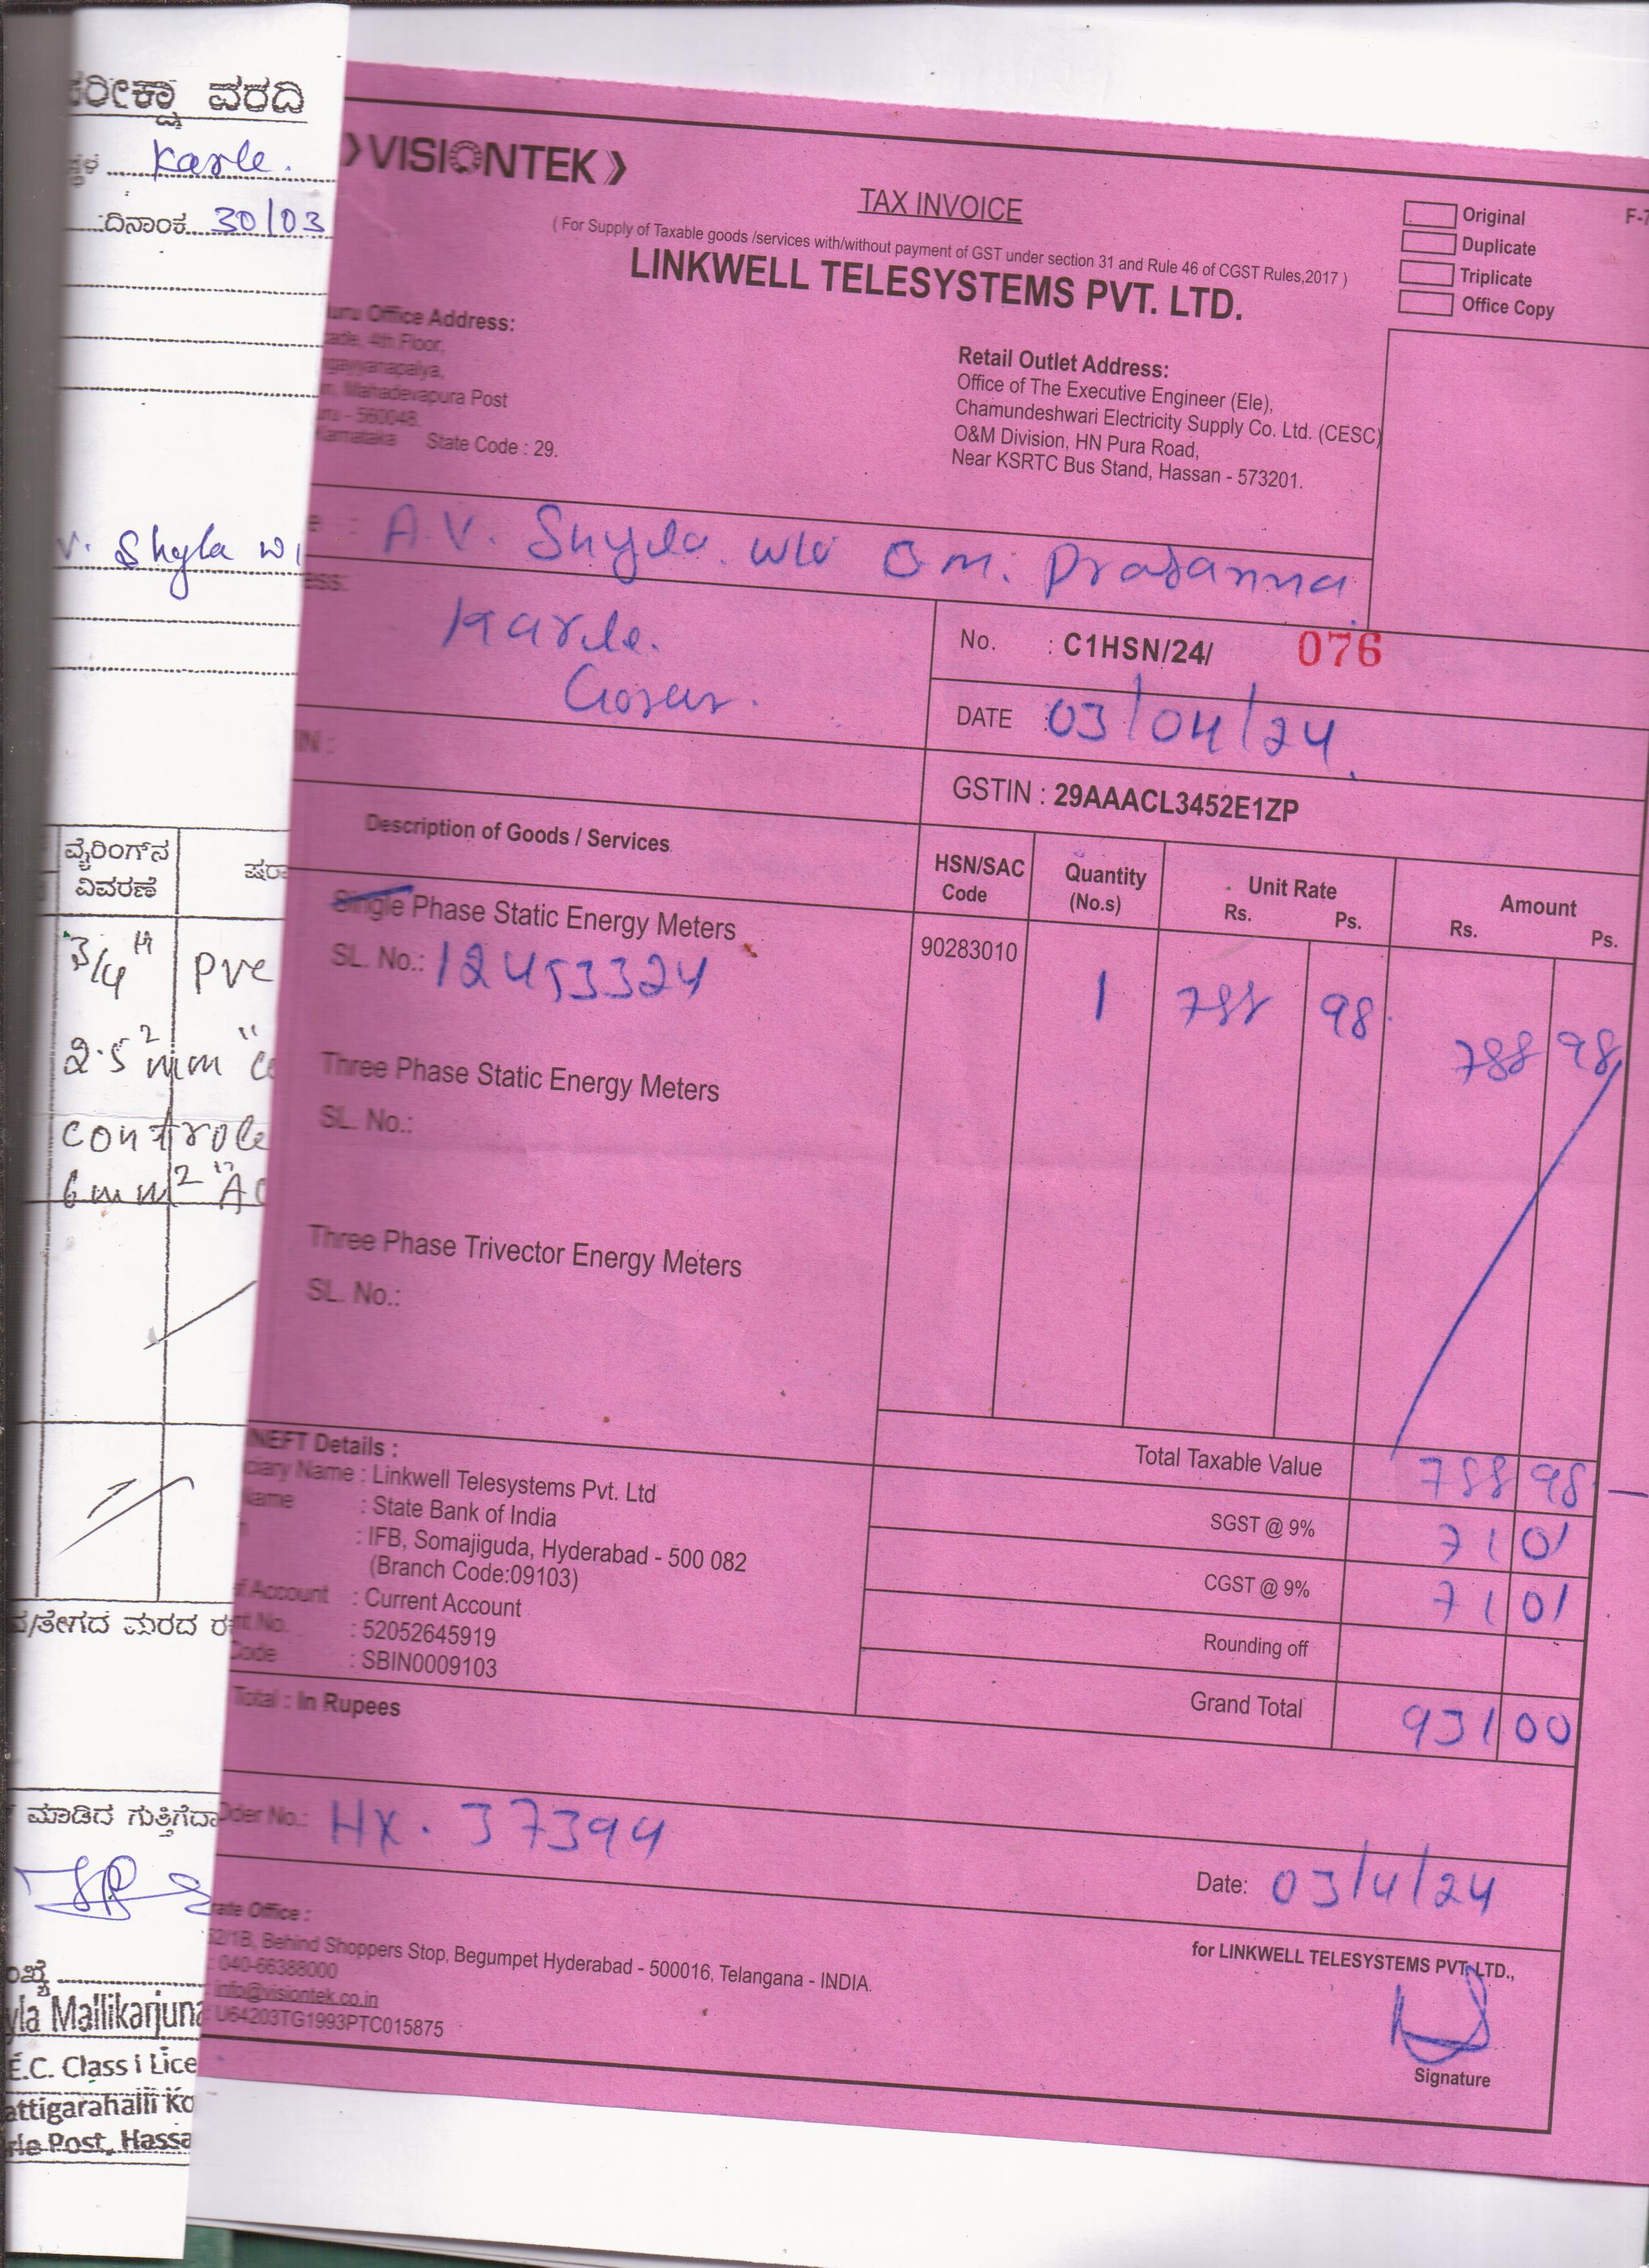 ವರದಿ
Karle.
ದಿನಾಂಕ 30/03
V. Shyla W/
ವೈರಿಂಗ್‌ನ
ವಿವರಣೆ
3/4" PVC
2.5 mm²
6mm²
ಮರದ
ಮಾಡಿದ
Mallikarjuna
E.C. Class i Lice
attigarahalli Ko
Post, Hassa
VISIONTEK
TAX INVOICE
( For Supply of Taxable goods /services with/without payment of GST under section 31 and Rule 46 of CGST Rules,2017 )
LINKWELL TELESYSTEMS PVT. LTD.
Original
Duplicate
Triplicate
Office Copy
Office Address:
4th Floor,
Mahadevapura Post
- 560048.
Karnataka State Code : 29.
Retail Outlet Address:
Office of The Executive Engineer (Ele),
Chamundeshwari Electricity Supply Co. Ltd. (CESC)
O&M Division, HN Pura Road,
Near KSRTC Bus Stand, Hassan - 573201.
: A.V. Shyla w/o O.M. Prasanna
Karle.
No. : C1HSN/24/ 076
DATE : 03/04/24.
GSTIN : 29AAACL3452E1ZP
Description of Goods / Services
HSN/SAC Code
Quantity (No.s)
Unit Rate Rs. Ps.
Amount Rs. Ps.
Single Phase Static Energy Meters
SL. No.: 12453324
90283010 1 788 98 788 98
Three Phase Static Energy Meters
SL. No.:
Three Phase Trivector Energy Meters
SL. No.:
NEFT Details :
Name : Linkwell Telesystems Pvt. Ltd
Name : State Bank of India
: IFB, Somajiguda, Hyderabad - 500 082
(Branch Code:09103)
Account : Current Account
No. : 52052645919
Code : SBIN0009103
Total Taxable Value 788 98
SGST @ 9% 71 01
CGST @ 9% 71 01
Rounding off
Grand Total 931 00
Total : In Rupees
Order No.: HX. 37394
Date: 03/4/24
Office :
Behind Shoppers Stop, Begumpet Hyderabad - 500016, Telangana - INDIA.
: 040-66388000
: info@visiontek.co.in
: U64203TG1993PTC015875
for LINKWELL TELESYSTEMS PVT. LTD.,
Signature